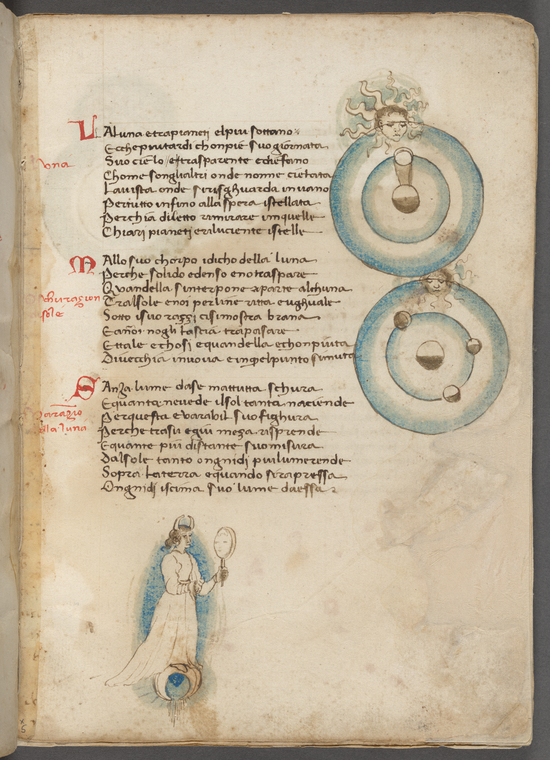 una
La luna e tra pianeti el piu sottano
Ecche piu tardi chonpie suo giornata
Suo cielo e trasparente edie fano
Chome songli altri onde nonne cietata
La vista onde si risghuarda in vano
Per tutto infino alla spera istellata
Perchia diletto ramirare in quelle
Chiari pianeti e raluciente istelle
Mallo suo chorpo i dicho della luna
Perche solido e denso e no traspare
Quandella sinterpone aparte alchuna
Tralsole e noi per line ritta e ughuale
schurazion
sole
Sotto isuo raggi ci si mostra bruna
E a noi nogli lascia trapasare
Ettale echosi equandella echonpiuta
Di vecchia in nuova e in quel punto si muta
Sanza lume da se mattutta schura
E quanta ne vede il sol tanta nacciende
Per questa e varabil suo fighura
variazio
ella luna
Perche tra su e qui meza risprende
E quante piu distante suo misura
Dal sole tanto ongni di piu lume rende
Sopra la terra e quando si rapressa
Ongni di iscima suo lume da essa